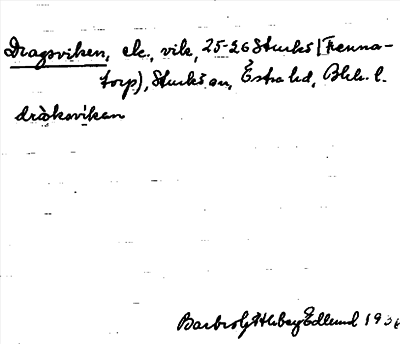 Dragsviken, ek., vik, 25-26 Sturkö (Trenna-
torp), Sturkö sn, Östra hd, Blek. l.
dràksvíkan
Barbro Edlund 1936